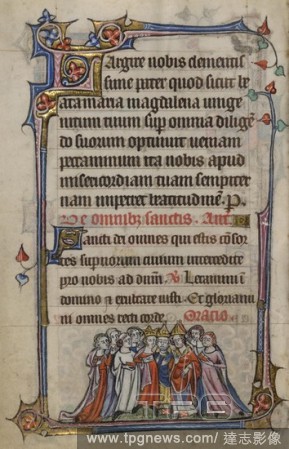 Largire nobis clementis
sime pater quod sicut be
ata maria magdalena unige
nitum tuum sup omnia diligē
do suorum optinuit veniam
peccaminum ita nobis apud
misericordiam tuam sempiter
nam impetret beatitudinē. P.
De omnibz sanctis. Ant.
Sancti dei omnes qui estis cōsor
tes supnorum civium intercedite
pro nobis ad dnm. Letamini in
domino et exultate iusti. Et gloriami
ni omnes recti corde. Oratio.
TPG
www.tpgnews.com/ 達志影像